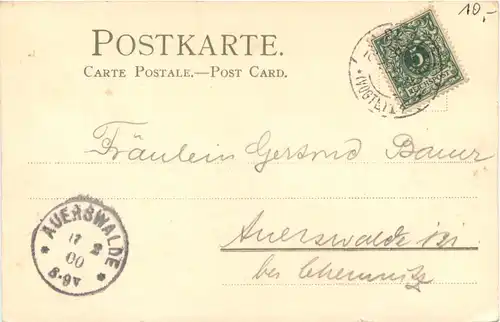 10,-
POSTKARTE.
CARTE POSTALE.—POST CARD.
5
REICHSPOST
(VOGTL)
Fräulein Gertrud Bauer
Auerswalde
bei Chemnitz
* AUERSWALDE *
17 2
00
8-9V